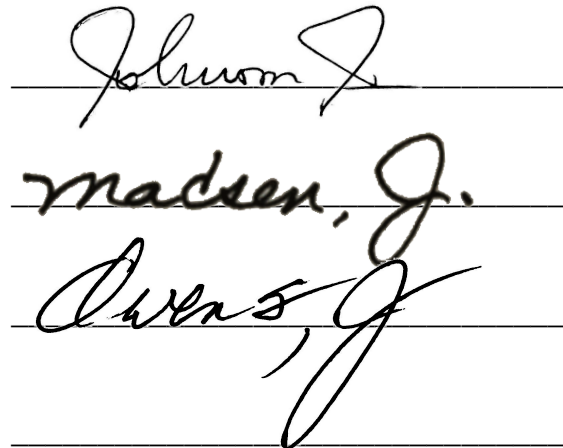 Johnson J
Madsen, J.
Owens, J